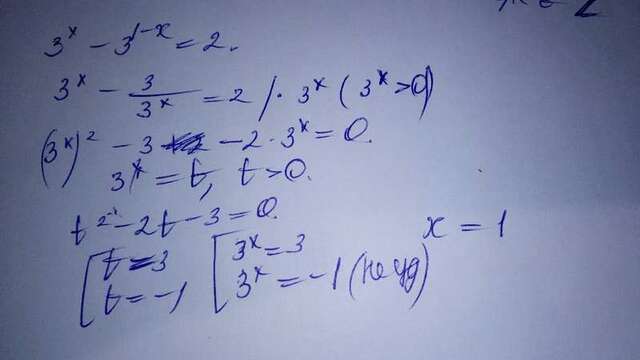 3^x - 3^{1-x} = 2.
3^x - \frac{3}{3^x} = 2 / · 3^x (3^x > 0)
(3^x)^2 - 3 - 2 · 3^x = 0.
3^x = t, t > 0.
t^2 - 2t - 3 = 0.
[t = 3 [3^x = 3 x = 1
[t = -1 [3^x = -1 (не уд)